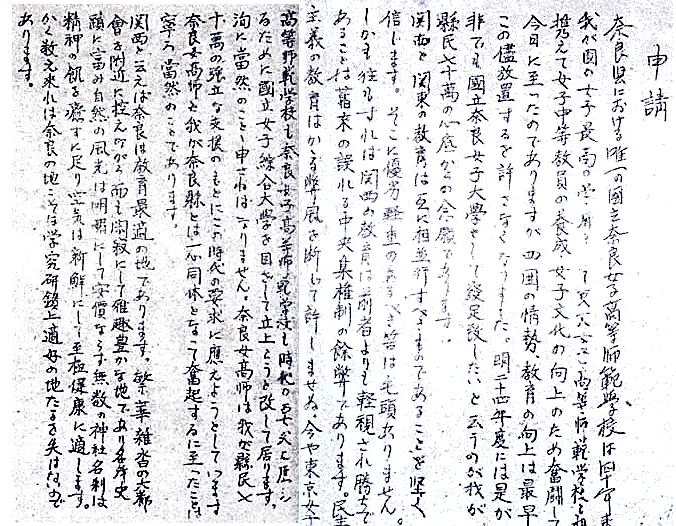 申請
奈良県における唯一の國立奈良女子高等師範学校は四十年来
我が國の女子最高の学府として東京女子高等師範学校と相
携えて女子中等教員の養成、女子文化の向上のため奮闘して
今日に至ったのでありますが四囲の情勢、教育の向上は最早
この儘放置するを許さなくなりました。明二十四年度には是が
非でも國立奈良女子大學として發足致したいと云うのが我が
縣民七十萬の心底からの念願であります。
関西と関東の教育は互に相並行すべきものであることを堅く
信じます。そこに優劣軽重のあるべき筈は毛頭ありません。
しかも往々すれば関西の教育は前者よりも軽視され勝ちで
あることは舊来の誤れる中央集権制の餘弊であります。民主
主義の教育はかゝる弊風を断じて許しませぬ。今や東京女子
高等師範学校も奈良女子高等師範学校も時代の要求に應ず
るために國立女子綜合大學を目ざして立上ろうと致して居ります。
洵に当然のことと申さねばなりません。奈良女高師は我が縣民七
十萬の強立な支援のもとにこの時代の要求に應えようとしています
奈良女高師と我が奈良縣とは一心同体となって奮起するに至ったことは
寧ろ当然のことであります。
関西と云えば奈良は教育最適の地であります。繁華雑沓の大都
會を附近に控えながら而も閑寂にして雅趣豊かな地であり名所史
蹟に富み自然の風光は明媚にして字價ならず無数の神社名刹は
精神の飢を癒すに足り空気は新鮮にして至極健康に適します。
かく数え来れば奈良の地こそは学究研鑽上適好の地たるを失はないで
あります。